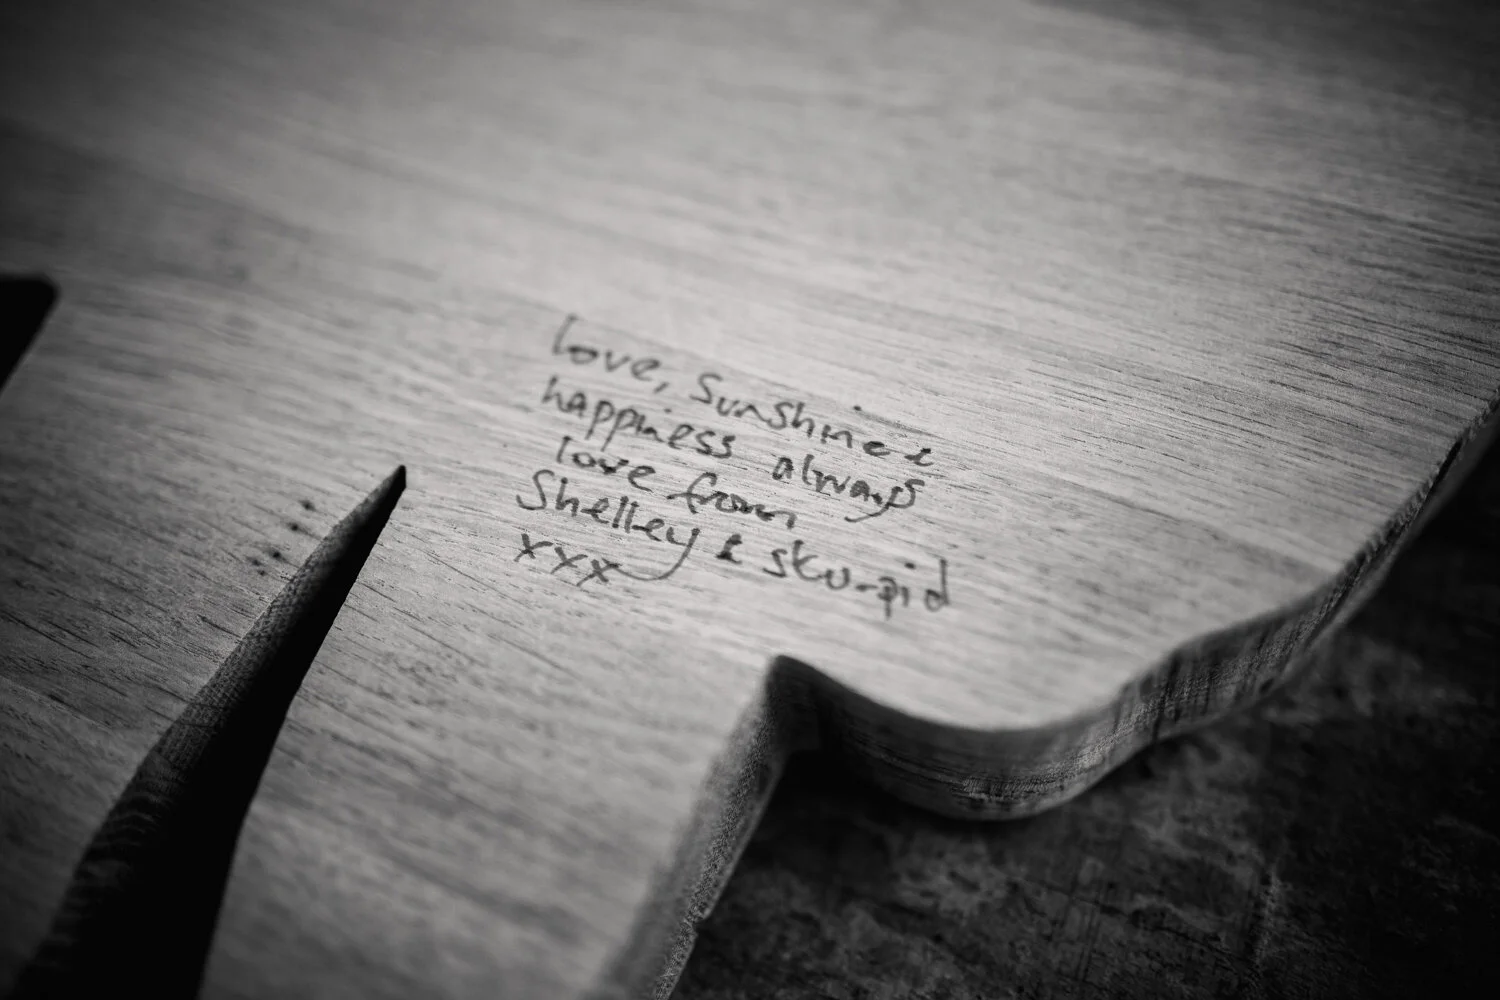 love, Sunshine &
happiness always
love from
Shelley & Sku-pid
xxx